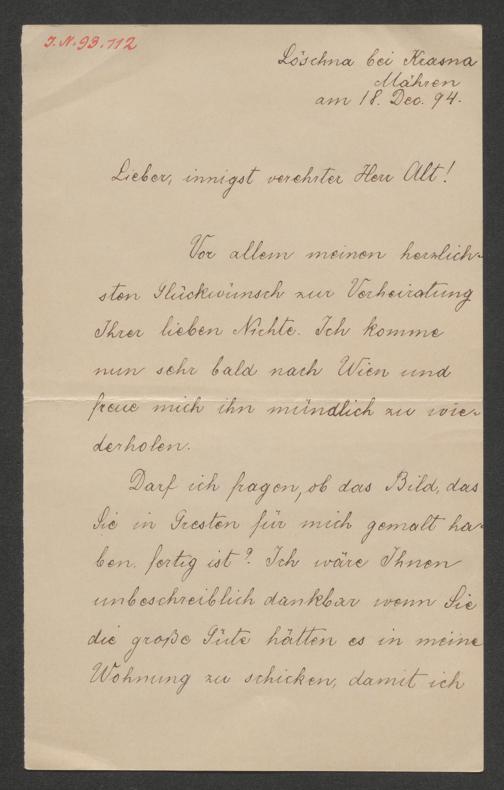 I.N. 93.112
Löschna bei Krasna
Mähren
am 18. Dec. 94.
Lieber, innigst verehrter Herr Alt!
Vor allem meinen herzlich-
sten Glückwunsch zur Verheiratung
Ihrer lieben Nichte. Ich komme
nun sehr bald nach Wien und
freue mich ihn mündlich zu wie-
derholen.
Darf ich fragen, ob das Bild, das
Sie in Gresten für mich gemalt ha-
ben, fertig ist? Ich wäre Ihnen
unbeschreiblich dankbar wenn Sie
die große Güte hätten es in meine
Wohnung zu schicken, damit ich